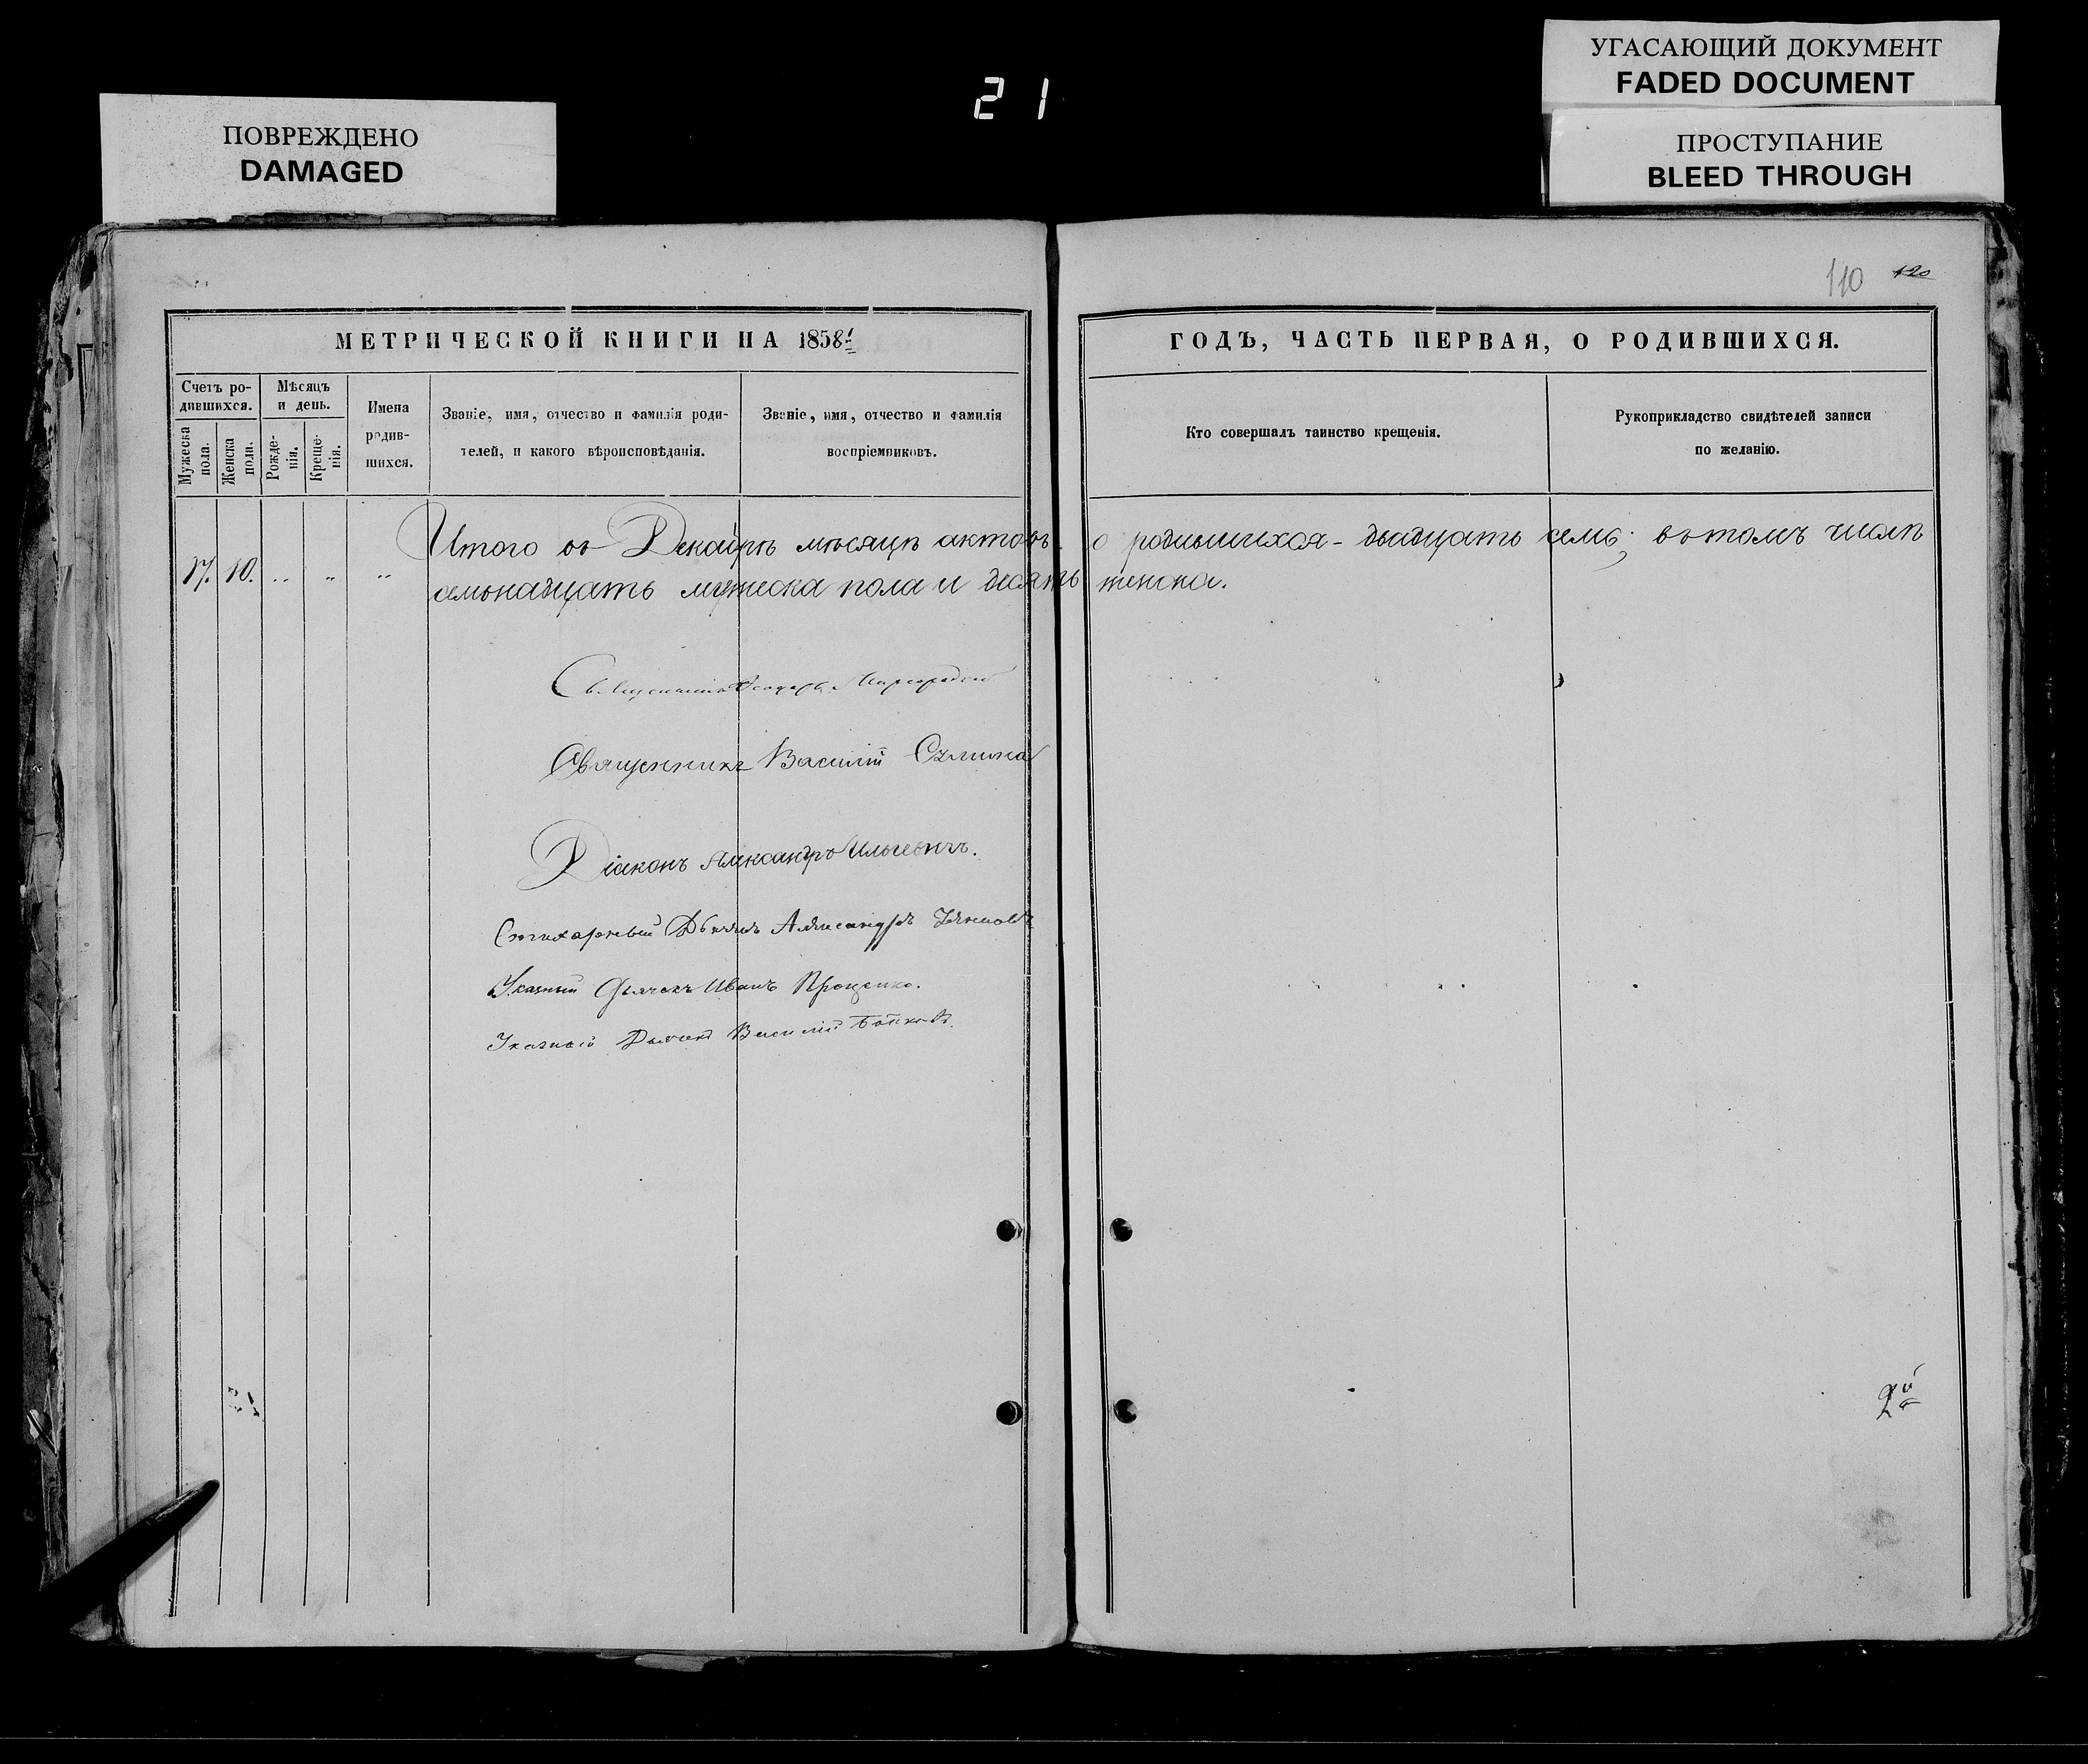 УГАСАЮЩИЙ ДОКУМЕНТ
FADED DOCUMENT
21
ПОВРЕЖДЕНО
DAMAGED
ПРОСТУПАНИЕ
BLEED THROUGH
110 120
МЕТРИЧЕСКОЙ КНИГИ НА 1858й
ГОДЪ, ЧАСТЬ ПЕРВАЯ, О РОДИВШИХСЯ.
Счетъ ро-
дившихся.
Мужеска
пола.
Женска
пола.
Мѣсяцъ
и день.
Рожде-
нія.
Креще-
нія.
Имена
родив-
шихся.
Званіе, имя, отчество и фамилія роди-
телей, и какого вѣроисповѣданія.
Званіе, имя, отчество и фамилія
воспріемниковъ.
Кто совершалъ таинство крещенія.
Рукоприкладство свидѣтелей записи
по желанію.
Итого въ Декабрѣ мѣсяцѣ актовъ о родившихся - двадцать семь; въ томъ числѣ
17. 10. „ „ „ семьнадцать мужеска пола и десять женска.
Священникъ Ѳеодоръ
Священникъ Василій
Діаконъ Александръ Ильевичъ.
Стихарный Дьячекъ Александръ
Указный Дьячекъ Иванъ Проценко.
Указный Дьячекъ Василій Бойковъ.